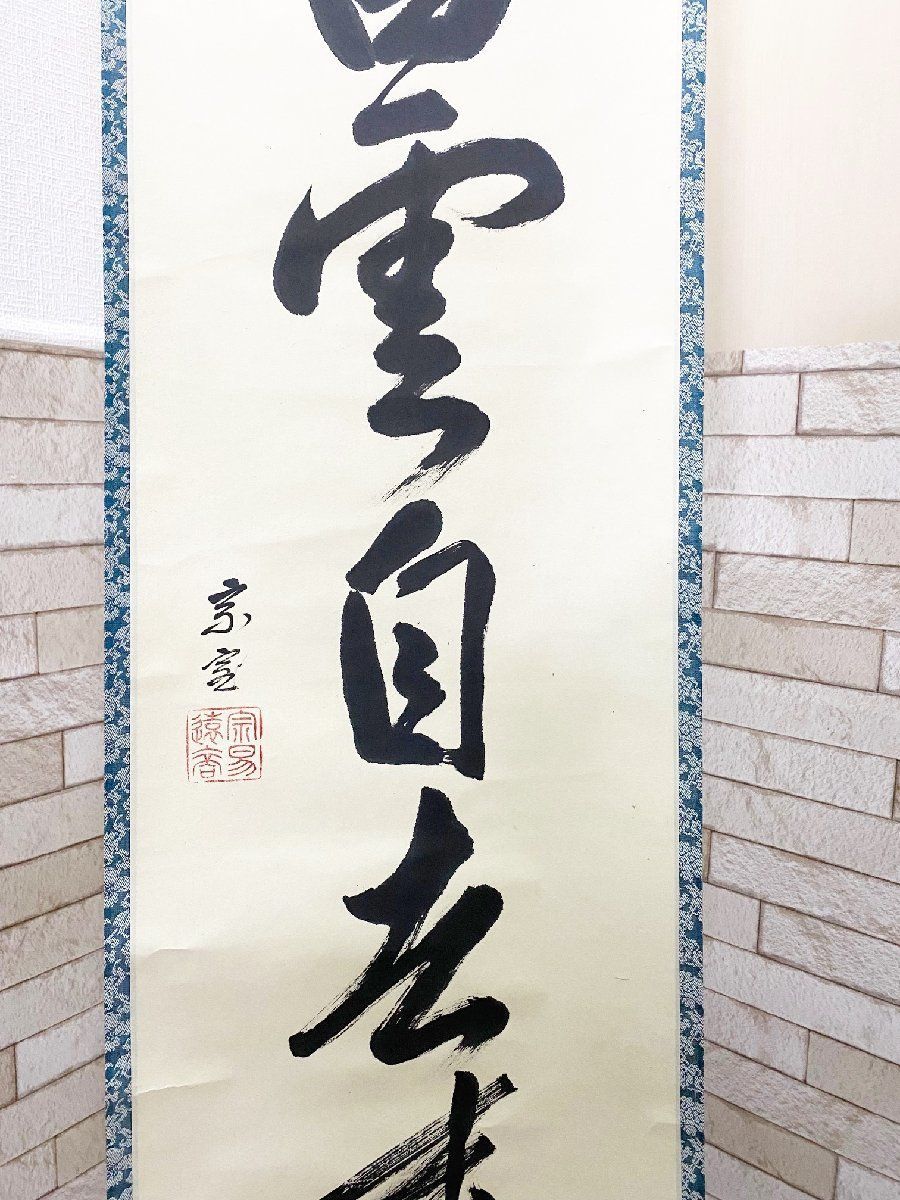 白雲自去来
宗室
宗易
遠裔